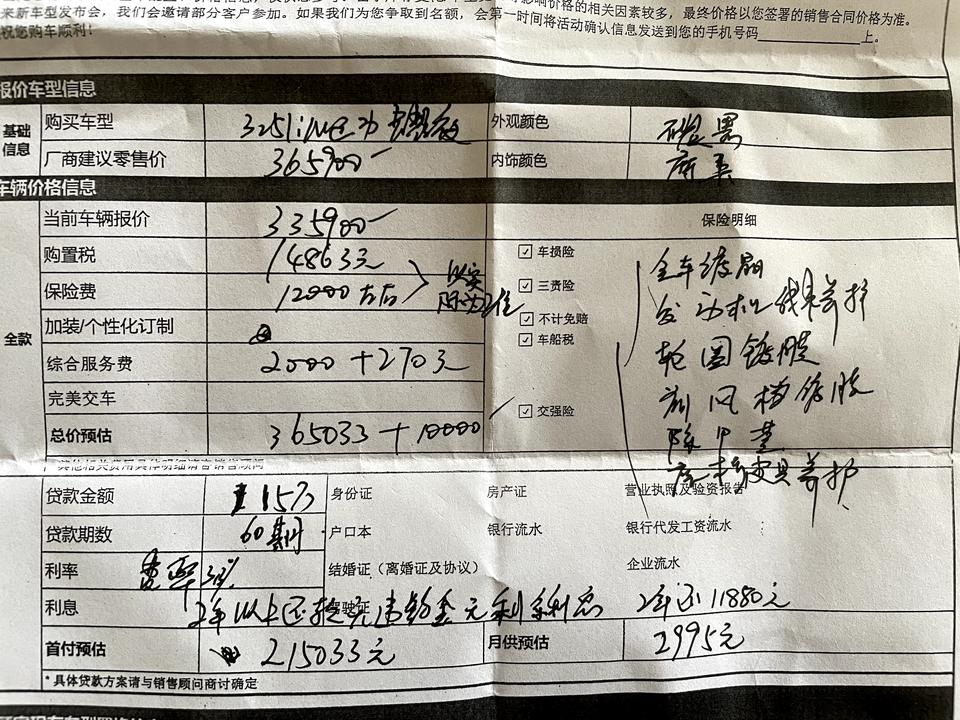 来新车型发布会，我们会邀请部分客户参加。如果我们为您争取到名额，会第一时间将活动确认信息发送到您的手机号码 上。
影响价格的相关因素较多，最终价格以您签署的销售合同价格为准。
祝您购车顺利！
报价车型信息
基础信息
购买车型 325li 外观颜色 黑
厂商建议零售价 365900 内饰颜色
车辆价格信息
全款
当前车辆报价 335900 保险明细
购置税 14863元 车损险 全车镀晶
保险费 12000左右 以实际为准 三责险 发动机线束养护
加装/个性化订制 不计免赔
综合服务费 2000+270元 车船税 轮圈镀膜
完美交车 前风档镀膜
总价预估 365033+10000 交强险 除甲荃
座椅皮具养护
贷款金额 15万 身份证 房产证 营业执照及验资报告
贷款期数 60期 户口本 银行流水 银行代发工资流水
利率 费率3% 结婚证（离婚证及协议） 企业流水
利息 2年以上还款无违约金 驾驶证 2年还11880元
首付预估 215033元 月供预估 2995元
*具体贷款方案请与销售顾问商讨确定